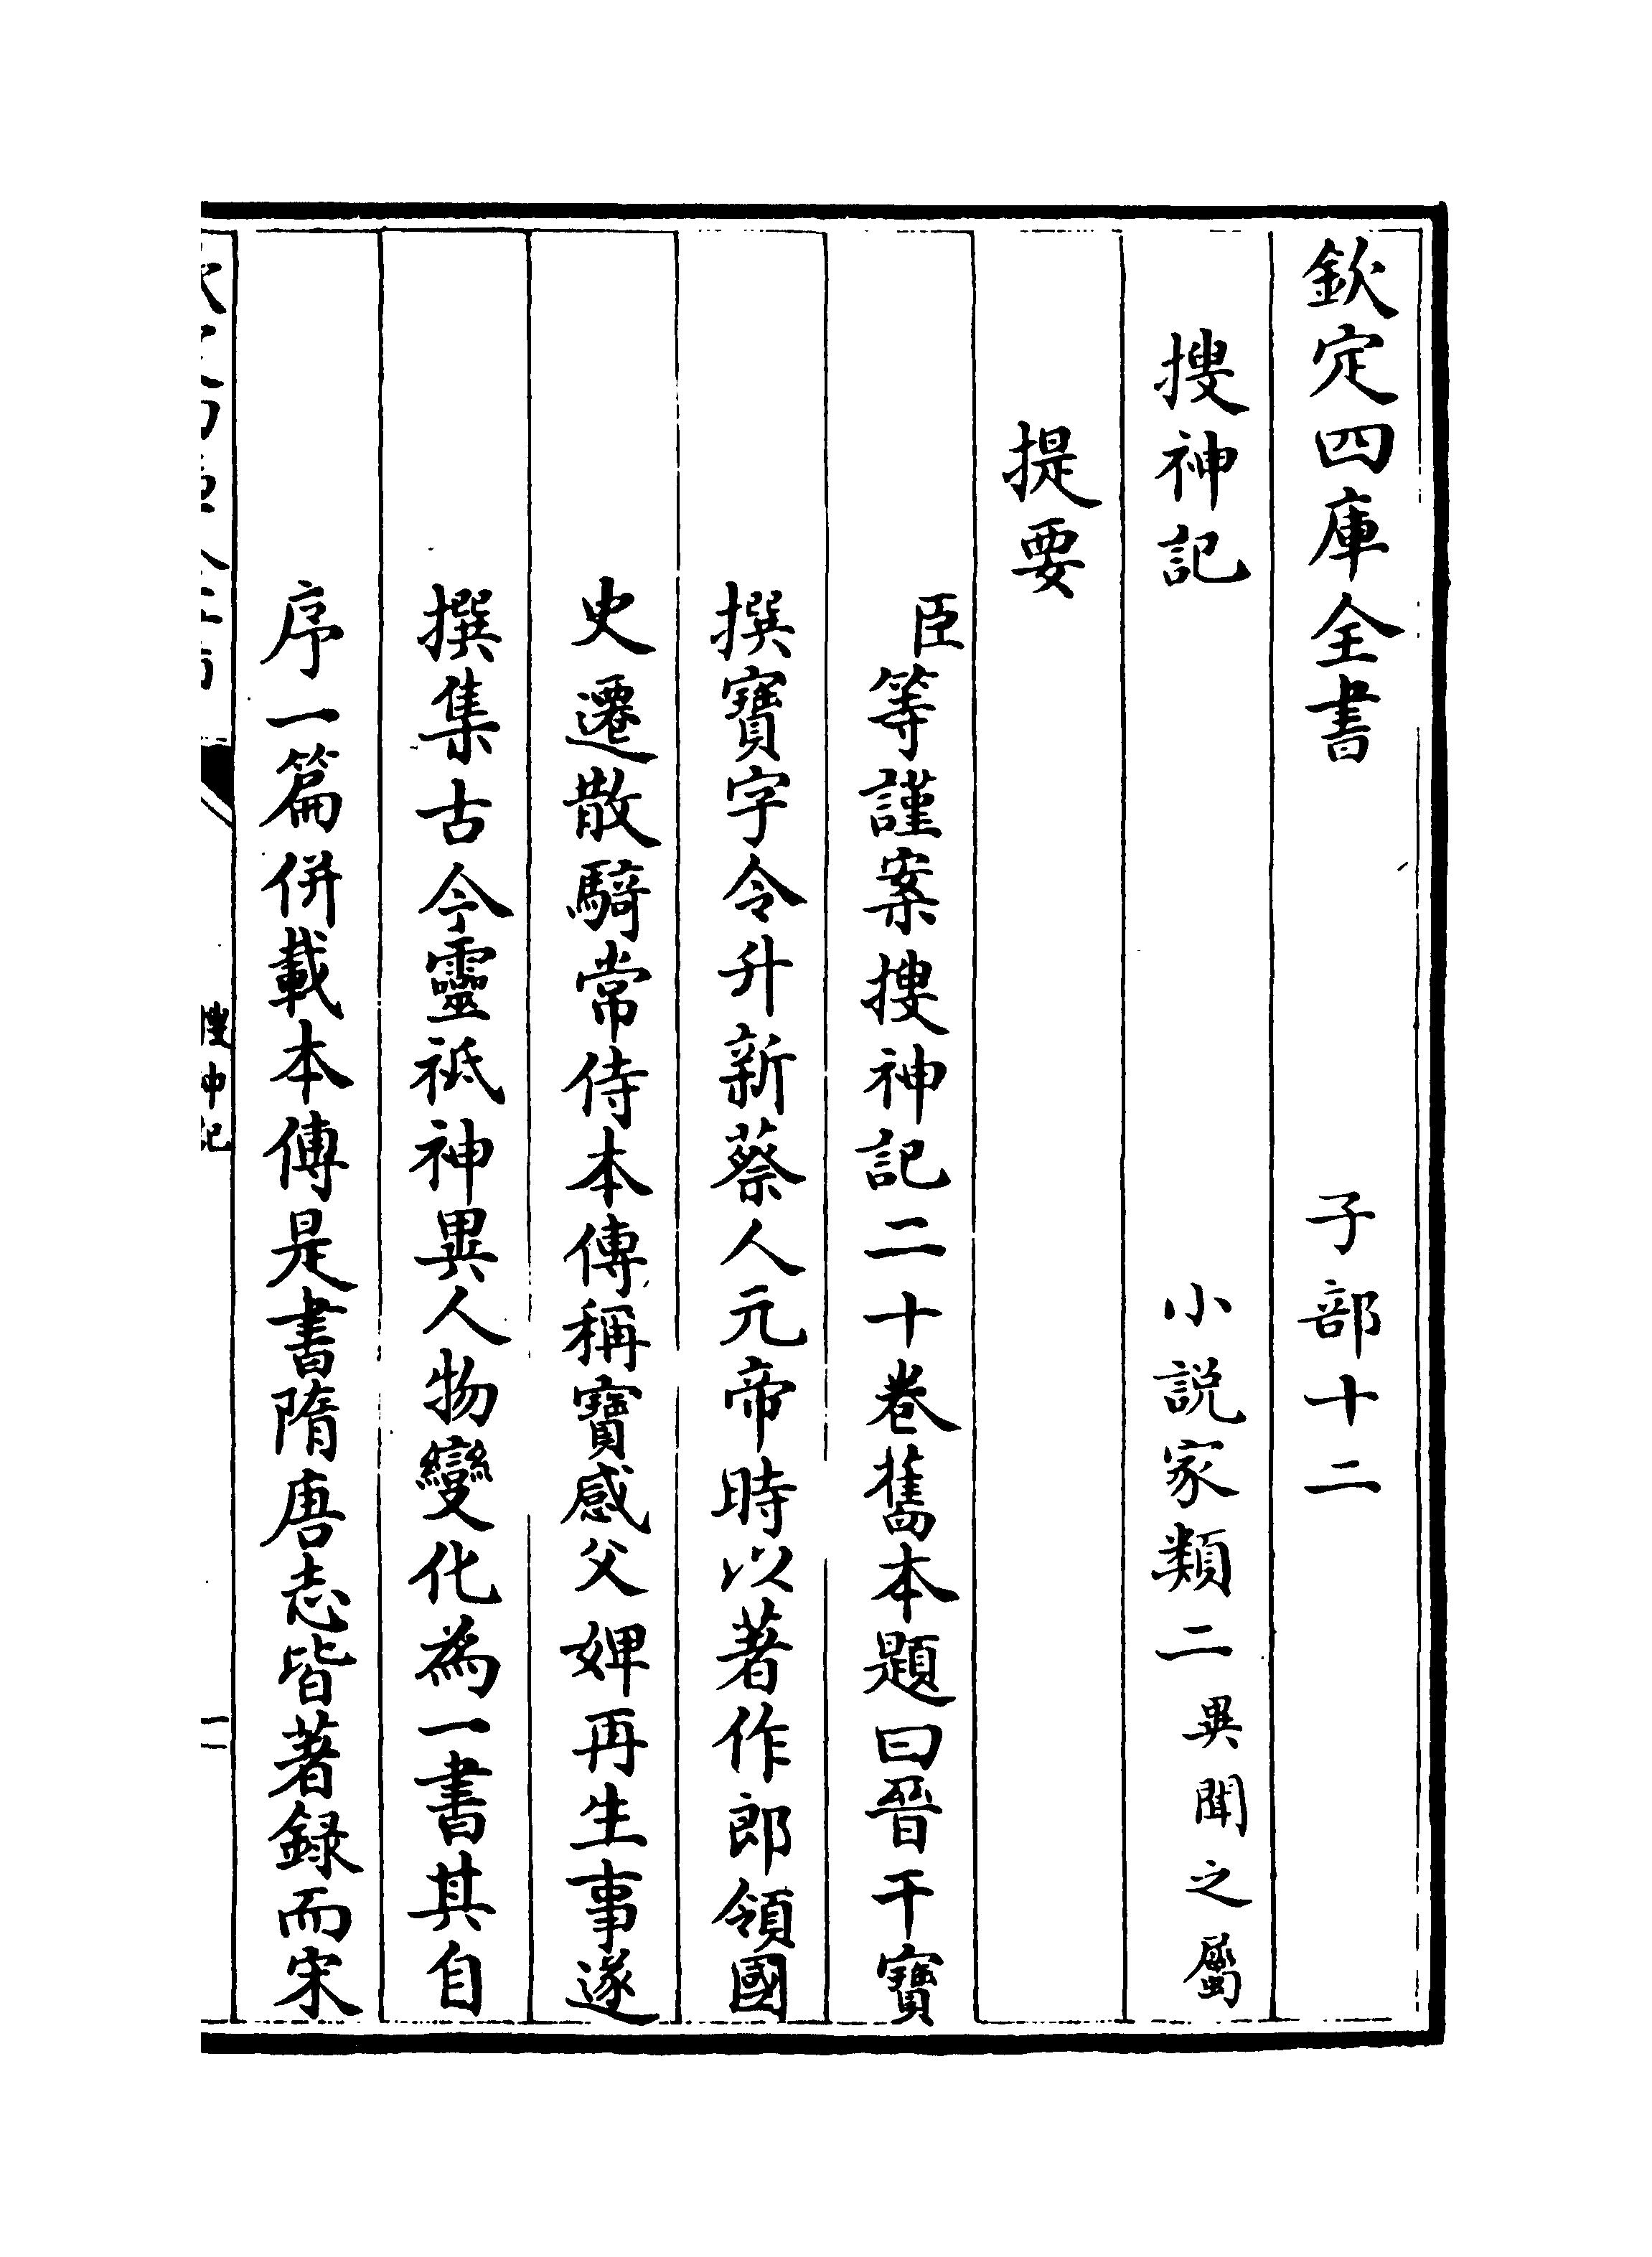 欽定四庫全書　　　　子部十二
搜神記　　　　小説家類二異聞之屬
提要
臣等謹案搜神記二十卷舊本題曰晉干寶
撰寶字令升新蔡人元帝時以著作郎領國
史遷散騎常侍本傳稱寶感父婢再生事遂
撰集古今靈祗神異人物變化為一書其自
序一篇併載本傳是書隋唐志皆著録而宋
搜神記